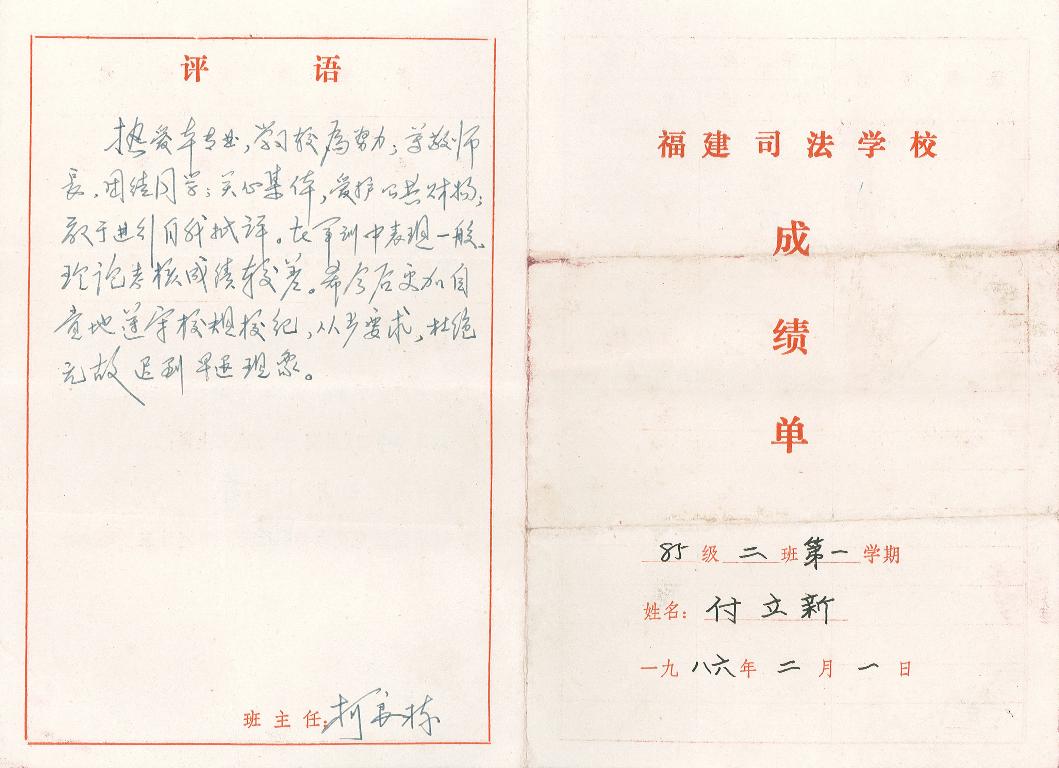 评 语
热爱本专业，学习较为努力；尊敬师
长，团结同学；关心集体，爱护公共财物；
敢于进行自我批评。在军训中表现一般，
理论考核成绩较差。希今后更加自
觉地遵守校规校纪，从严要求，杜绝
无故迟到早退现象。
班主任：柯良栋
福建司法学校
成
绩
单
85级二班第一学期
姓名：付立新
一九八六年二月一日